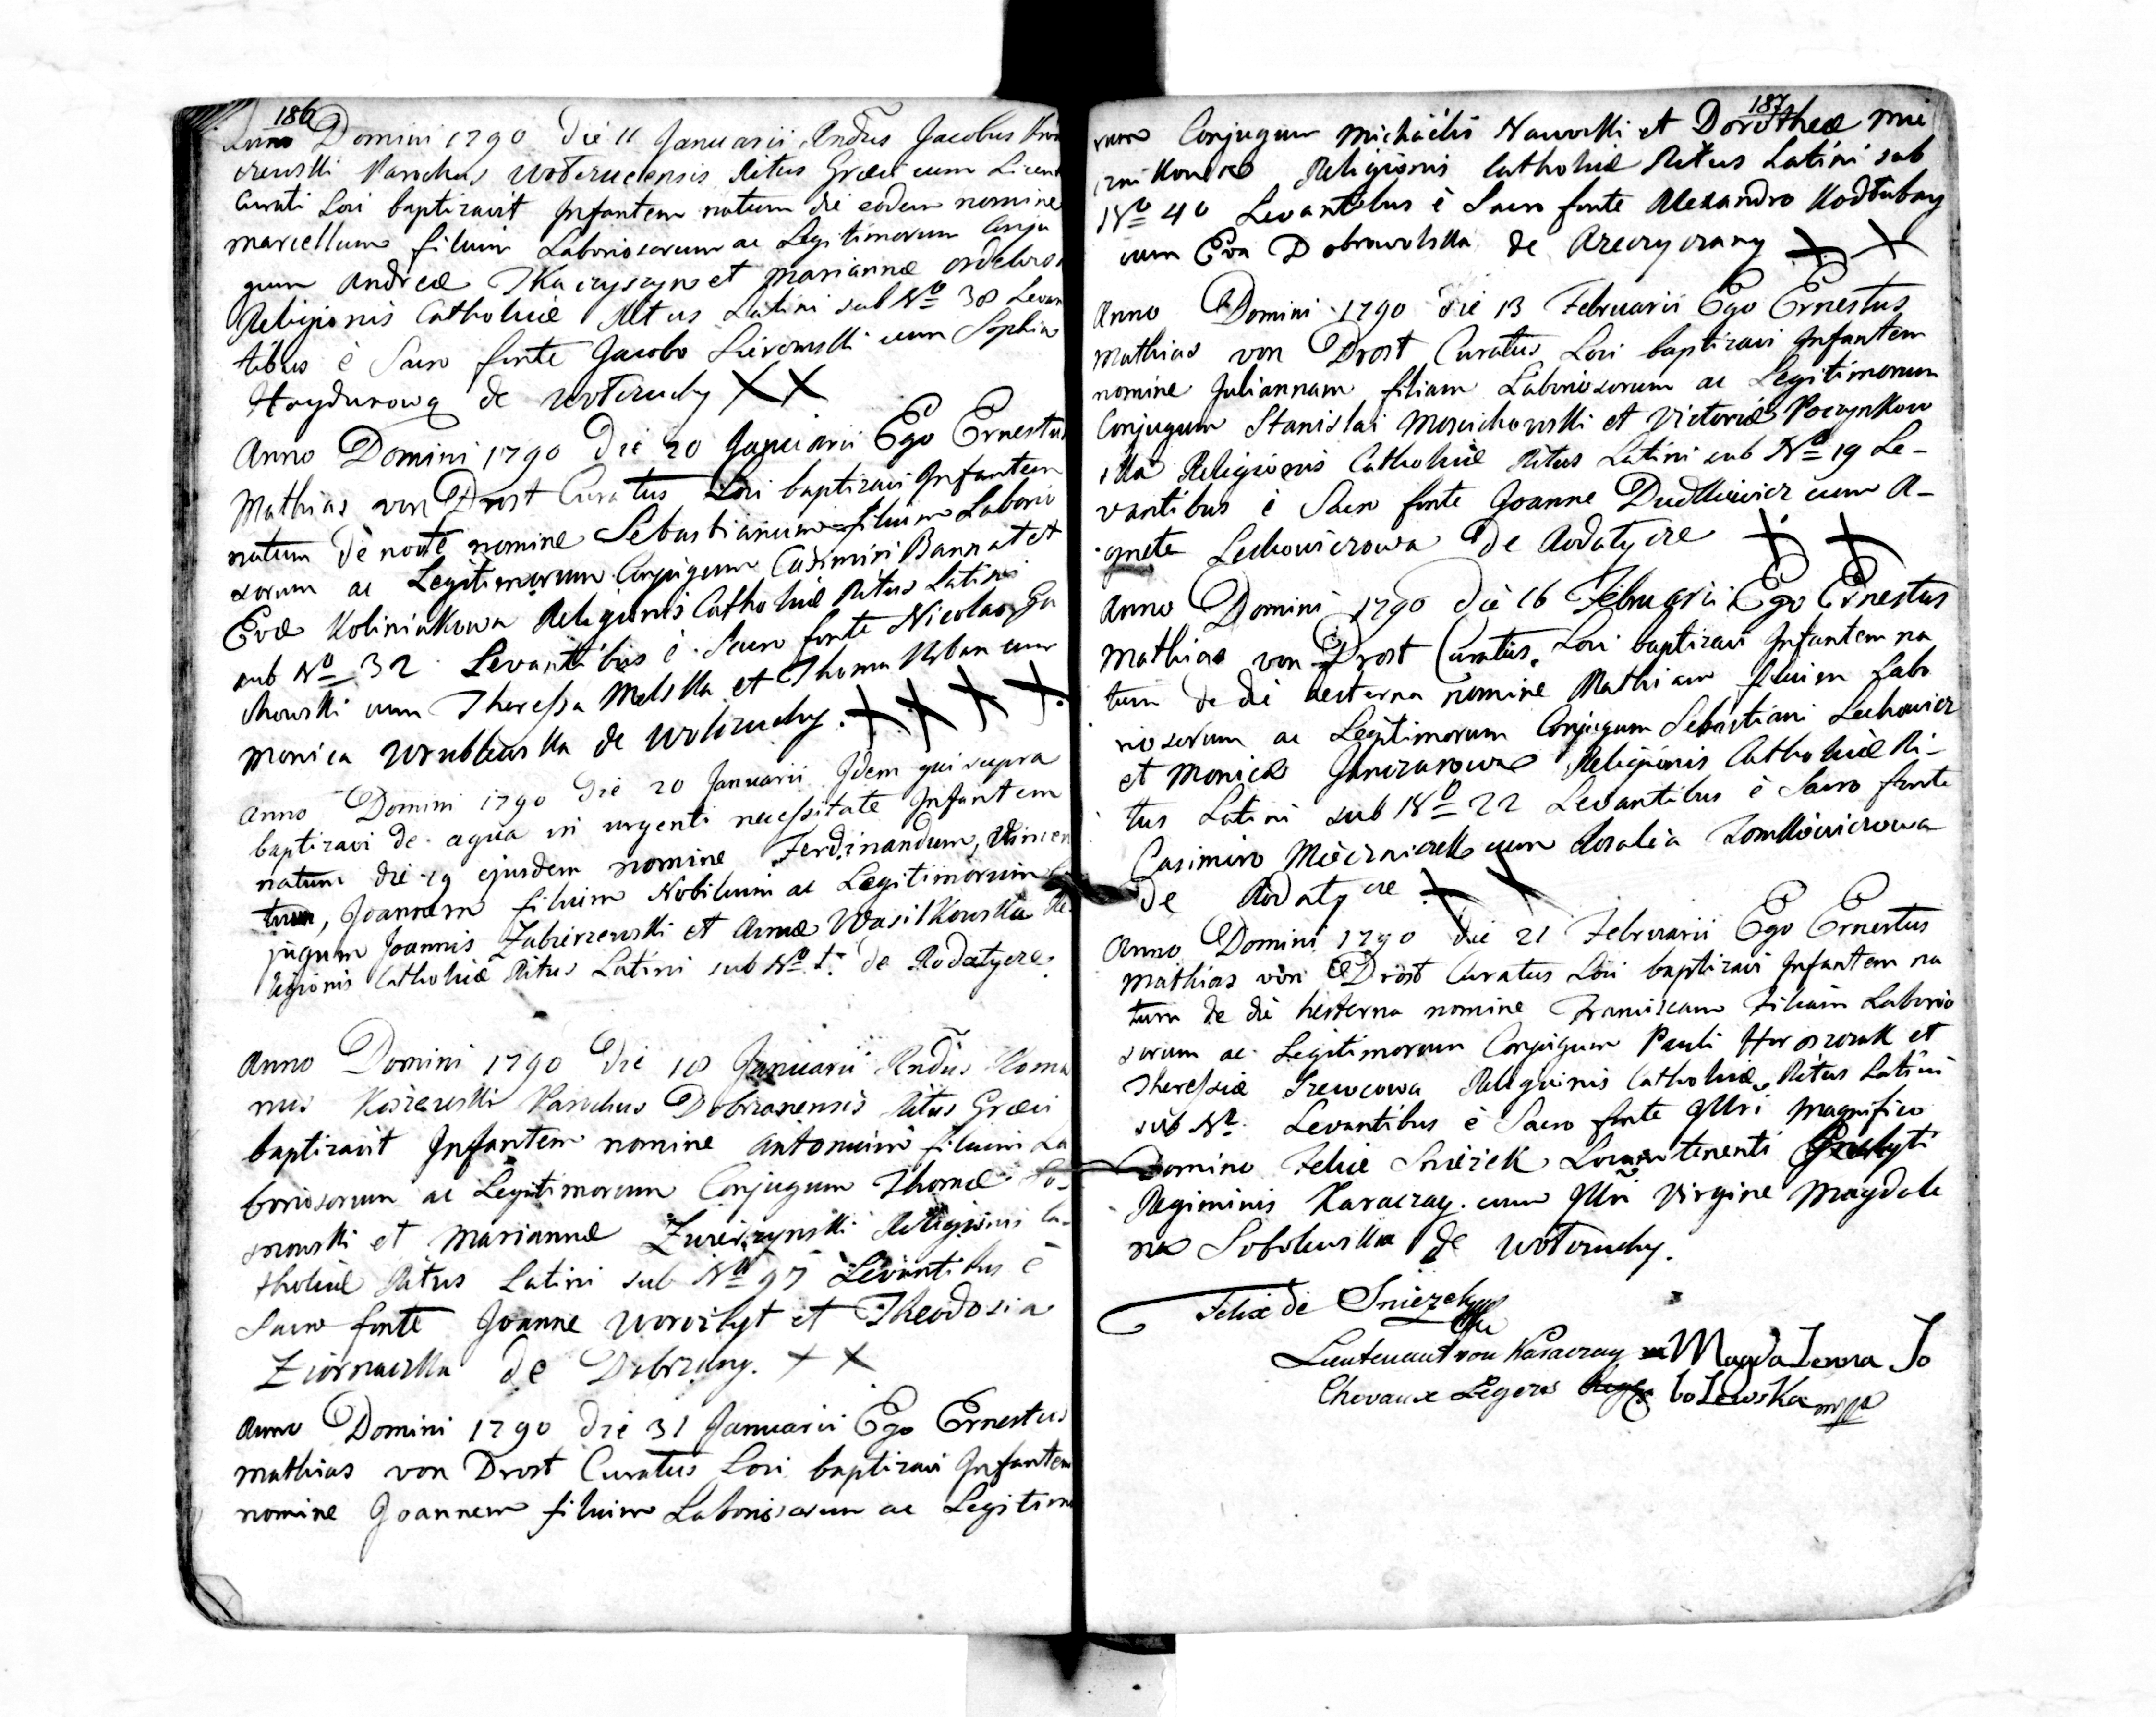 186
Anno Domini 1790 die 11 Januarii Rndus Jacobus
Parochus Wotczucensis Ritus Graeci cum Licent
Curati Loci baptizavit Infantem natum die eodem nomine
Marcellum filium Laboriosorum ac Legitimorum Conju
gum Andreæ Tkaczyszyn et Mariannæ
Religionis Catholicæ Ritus Latini sub No 38 Levan
tibus è Sacro fonte Jacobo cum Sophia
Haydurową de Wotczuchy XX
Anno Domini 1790 Die 20 Januarii Ego Ernestus
Mathias von Drost Curatus Loci baptizavi Infantem
natum de nocte nomine Sebastianum filium Laborio
sorum ac Legitimorum Conjugum Casimiri Bannat et
Evæ Koliniakowa Religionis Catholicæ Ritus Latini
sub No 32 Levantibus è Sacro fonte Nicolao Ga
chowski cum Theressa Melska et Thoma Urban cum
Monica Wrublewska de Wotczuchy. X X X X
Anno Domini 1790 Die 20 Januarii Idem qui supra
baptizavi de aqua in urgenti necessitate Infantem
natum die 19 ejusdem nomine Ferdinandum, Vincen
tium, Joannem filium Nobilium ac Legitimorum Con
jugum Joannis Zubrzewski et Annæ Wasilkowska Re
ligionis Catholicæ Ritus Latini sub No 1. de Rodatycze
Anno Domini 1790 Die 18 Januarii Rndus Roma
nus Parochus Dobrzanensis Ritus Græci
baptizavit Infantem nomine Antonium filium La
boriosorum ac Legitimorum Conjugum Thomæ So-
snowski et Mariannæ Zwierzynski Religionis Ca-
tholicæ Ritus Latini sub No 97 Levantibus è
Sacro fonte Joanne Worożbyt et Theodosia
Ziornacka de Dobrzany. X X
Anno Domini 1790 die 31 Januarii Ego Ernestus
Mathias von Drost Curatus Loci baptizavi Infantem
nomine Joannem filium Laboriosorum ac Legitimo
187
rum Conjugum Michaëlis Nawolski et Dorotheæ Mie
cznikowna Religionis Catholicæ Ritus Latini sub
No 40 Levantibus è Sacro fonte Alexandro Kodłubay
cum Eva Dobrowolska de Rzeczyczany X X
Anno Domini 1790 die 13 Februarii Ego Ernestus
Mathias von Drost Curatus Loci baptizavi Infantem
nomine Juliannam filiam Laboriosorum ac Legitimorum
Conjugum Stanislai Moscichowski et Victoriæ Poczynkow
ska Religionis Catholicæ Ritus Latini sub No 19 Le-
vantibus è Sacro fonte Joanne Dudkiewicz cum A-
gneta Lechowiczowa de Rodatycze X X
Anno Domini 1790 die 16 Februarii Ego Ernestus
Mathias von Drost Curatus Loci baptizavi Infantem na
tum de die hesterna nomine Mathiam filium Labo
riosorum ac Legitimorum Conjugum Sebastiani Lechowicz
et Monicæ Janczarowa Religionis Catholicæ Ri-
tus Latini sub No 22 Levantibus è Sacro fonte
Casimiro Mieczniczek cum Rosalia Tomkiewiczowa
de Rodatycze X X
Anno Domini 1790 die 21 Februarii Ego Ernestus
Mathias von Drost Curatus Loci baptizavi Infantem na
tum de die hesterna nomine Franciscam Filiam Laborio
sorum ac Legitimorum Conjugum Pauli Horoszczak et
Theressiæ Szewcowa Religionis Catholicæ Ritus Latini
sub No Levantibus è Sacro fonte Illri Magnifico
Domino Felice Sniezek Locumtenenti
Regiminis Karaczay. cum Illri Virgine Magdale
na Sobolewska de Wotczuchy.
Felix de Sniezek
Lieutenant von Karaczay Magdalenna So
Chevaux Legers bolewska mppa